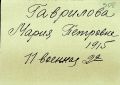 Гаврилова
Мария Петровна
1915
11 военная